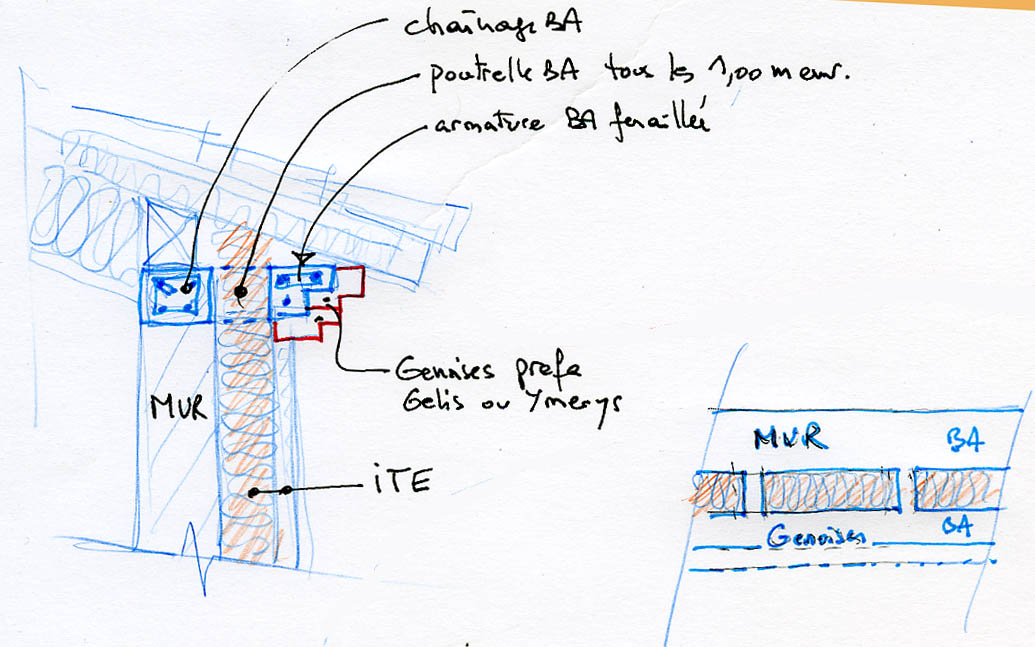 chaînage BA
poutrelle BA tous les 1,00 m env.
armature BA feraillée
Genoises prefa
Gelis ou Ymerys
MUR
iTE
MUR BA
BA
Genoises